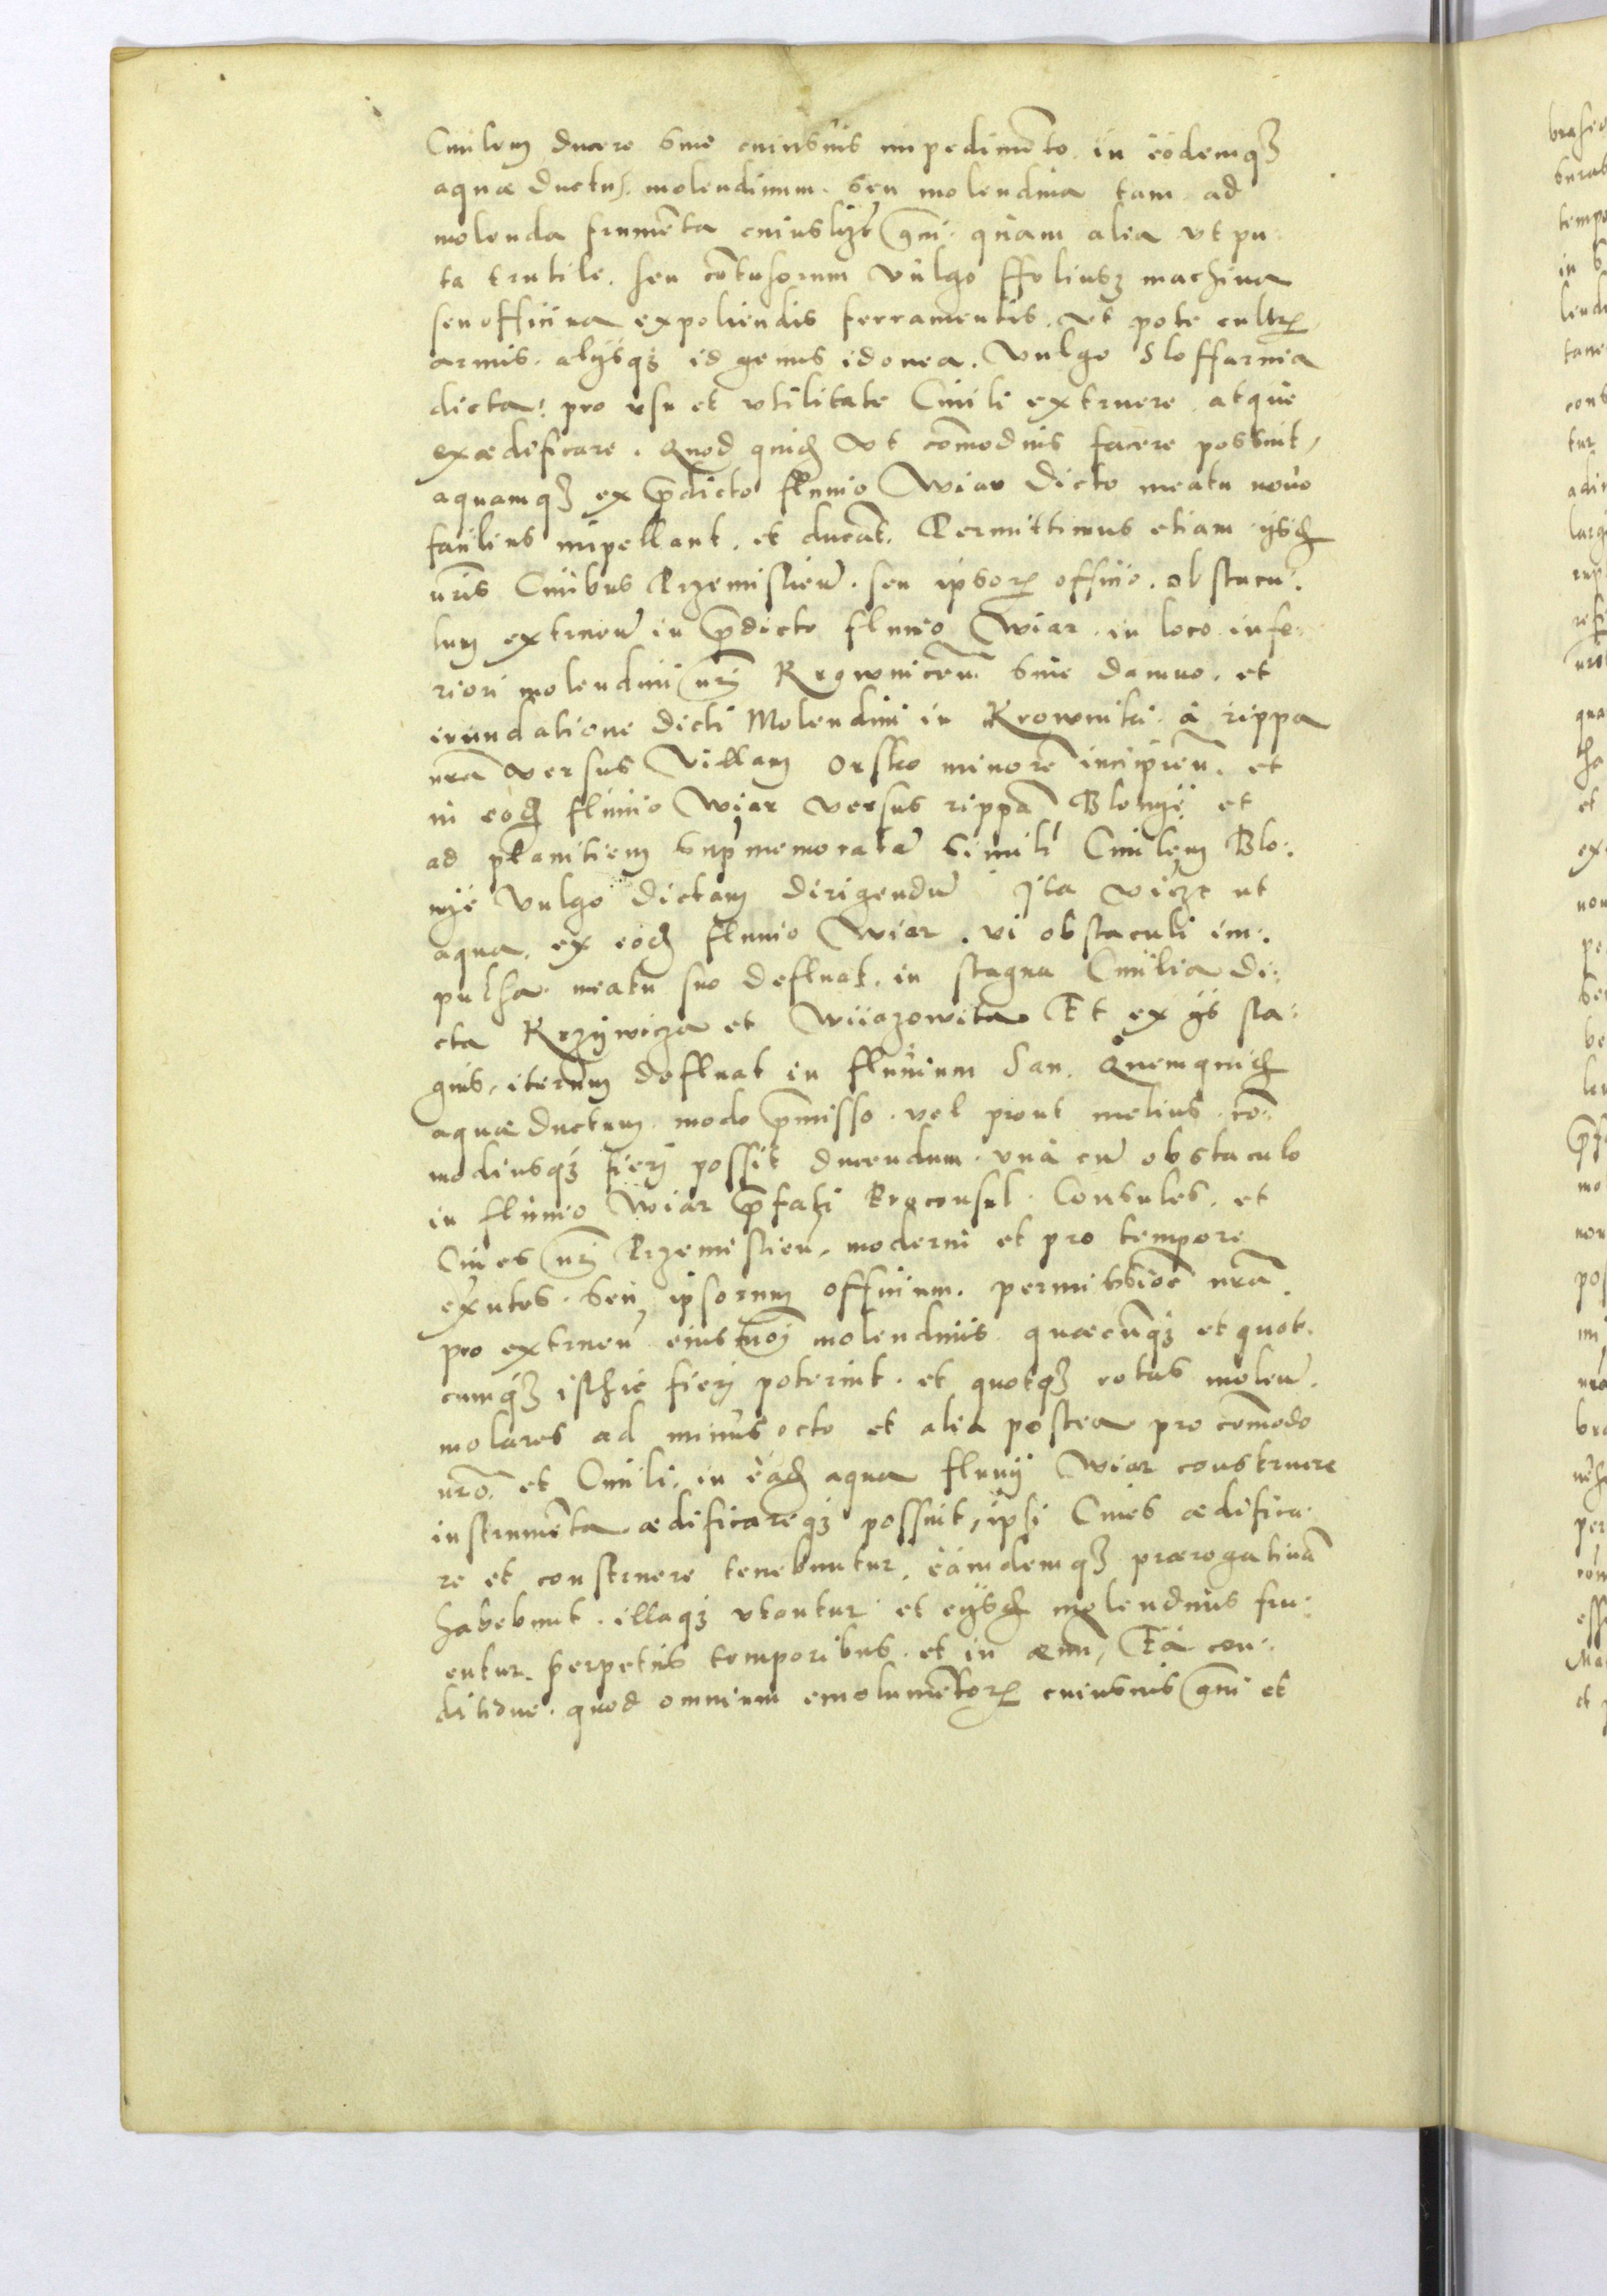 Ciuilem ducere sine cuiusuis impedimẽto. in eodemqȝ
aquæ ductu: molendinum. seu molendina tam ad
molenda frumẽta cuiuslibet gñis quam alia vt pu:
ta trutile. seu cõtusorum vulgo ffoliusȝ machina
seu officina expoliendis ferramentis. vt pote cultrꝝ
armis. alijsqȝ id genus idonea. vulgo Sloffarnia
dicta: pro vsu et vtilitate Ciuili extruere. atque
exædificare. Quod quidẽ vt cõmodius facere possint,
aquamqȝ ex p̃dicto fluuio Wiar dicto meatu nouo
facilius impellant. et ducãt. Permittimus etiam ijsdẽ
nr̃is Ciuibus Przemislieñ. seu ipsorꝝ officio. obstacu:
lum extrueñ in p̃dicto fluuio Wiar. in loco infe:
riori molendini nr̃i Krownicen̄. sine damno. et
inundatione dicti Molendini in Krownica. à rippa
nr̃a versus Villam Orsko minorẽ incipieñ. et
in eodẽ fluuio Wiar versus rippã Blonye et
ad planitiem supmemoratã similr Ciuilem Blo:
nye vulgo dictam dirigendũ Ita videlȝt ut
aqua. ex eodẽ fluuio Wiar. vi obstaculi im:
pulsa. meatu suo defluat. in stagna Ciuilia di:
cta Krzywicza et Wiiazowita Et ex ijs sta:
gnis, iterum defluat in fluuium San. Quemquidẽ
aquæ ductum. modo p̃misso. vel prout melius. cõ:
modiusqȝ fieri possit ducendum. vnà cũ obstaculo
in fluuio Wiar p̃fati Proconsul. Consules. et
Ciues nr̃i Przemislieñ. moderni et pro tempore
exñtes. seu ipsorum officium. permissiõe nr̃a.
pro extrueñ eiusmõi molendinis. quæcũqȝ et quot:
cumqȝ isthic fieri poterint. et quotqȝ rotas moleñ.
molares ad minus octo et alia postea pro cõmodo
nr̃o. et Ciuili. in eadẽ aqua fluuij Wiar construere
instrumẽta ædificareqȝ possint, ipsi Ciues ædifica:
re et construere tenebuntur. eamdemqȝ prærogatiuã
habebunt. illaqȝ vtantur et eijsdẽ molendinis fru:
entur. perpetuis temporibus. et in æuũ, Ea con:
ditione. quod omnium emolumẽtorꝝ cuiusuis gñis et